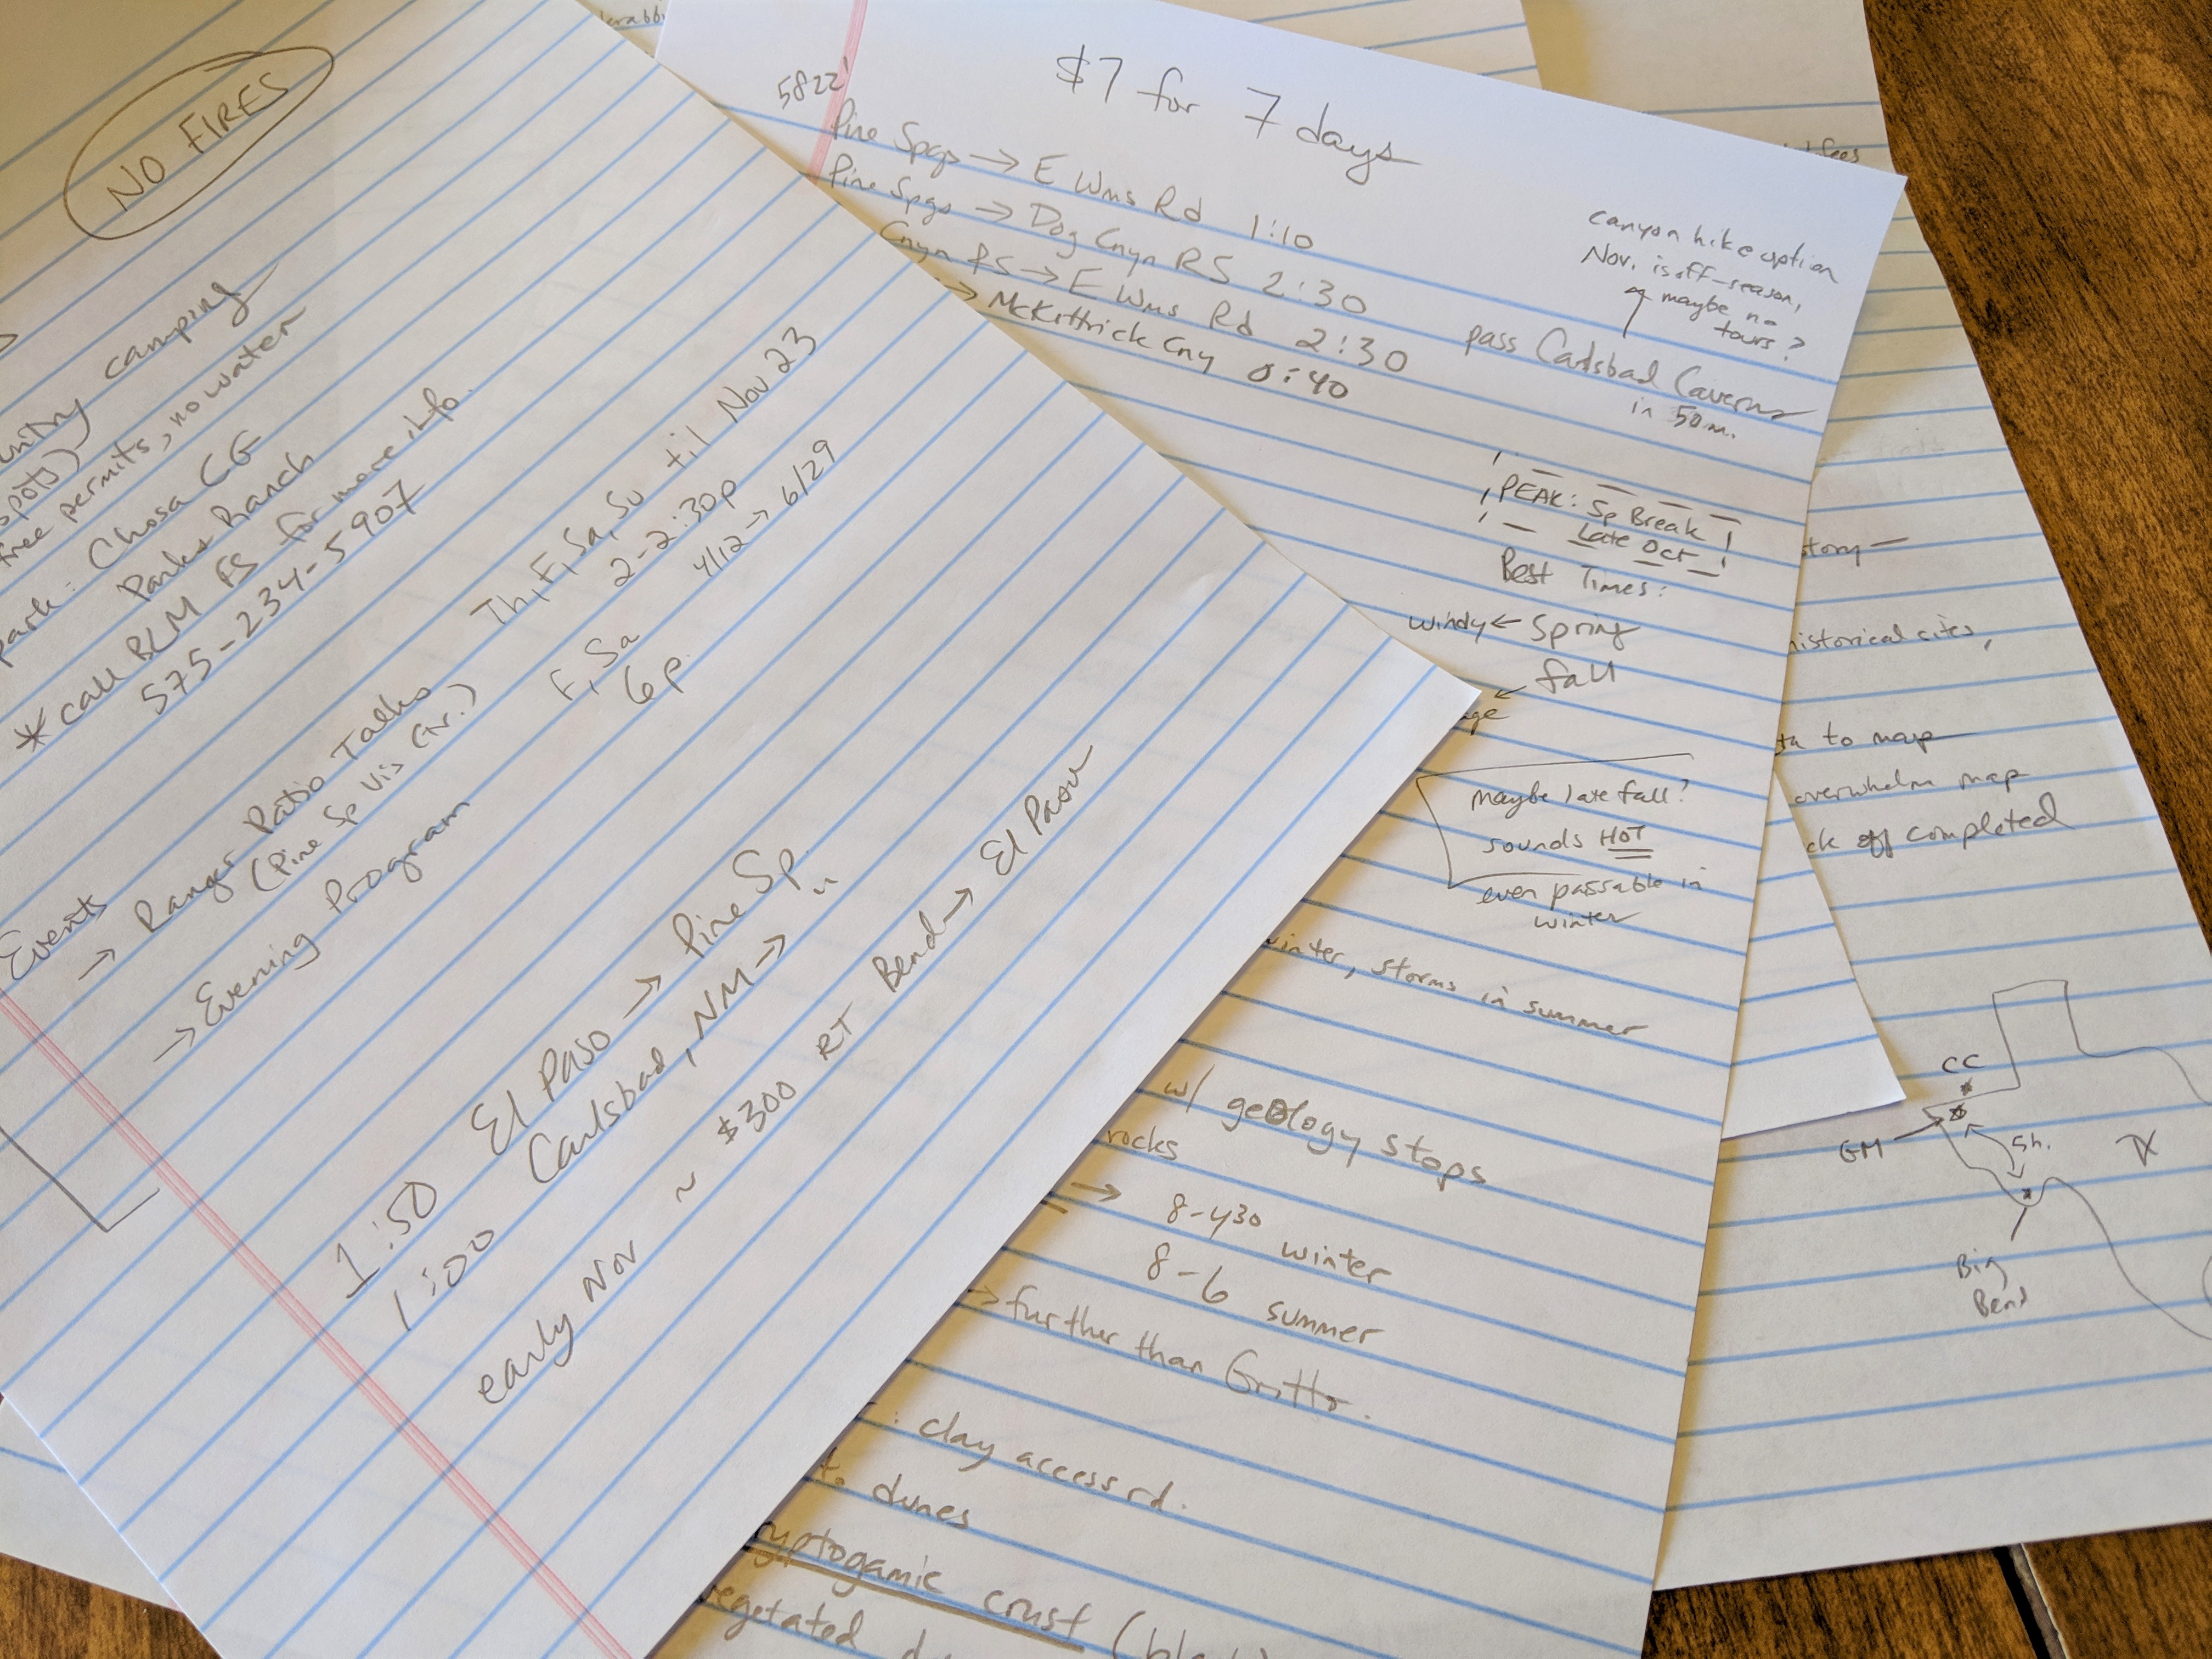 NO FIRES
camping
spots)
free permits, no water
park: Chosa CG
Parks Ranch
* call BLM FS for more info.
575-234-5907
Events
→ Ranger Patio Talks Th, F, Sa, Su til Nov 23
(Pine Sp Vis Ctr.) 2-2:30p
→ Evening Program F, Sa 4/12 → 6/29
6p
1:50 El Paso → Pine Sp.
1:00 Carlsbad, NM → "
early Nov ~ $300 RT Bend → El Paso
$7 for 7 days
5822'
Pine Spgs → E Wms Rd 1:10
Pine Spgs → Dog Cnyn RS 2:30
Cnyn RS → E Wms Rd 2:30
→ McKittrick Cny 0:40
canyon hike option
Nov. is off-season,
maybe no
tours?
pass Carlsbad Caverns
in 50 m.
PEAK: Sp Break
Late Oct
Best Times:
windy ← Spring
← fall
maybe late fall?
sounds HOT
even passable in
winter
winter, storms in summer
w/ geology stops
rocks
→ 8-430 winter
8-6 summer
→ further than Grotto.
: clay access rd.
to dunes
cryptogamic crust
vegetated
fees
story
historical cites,
to map
overwhelm map
ck off completed
CC
GM
5h.
TX
Big
Bend